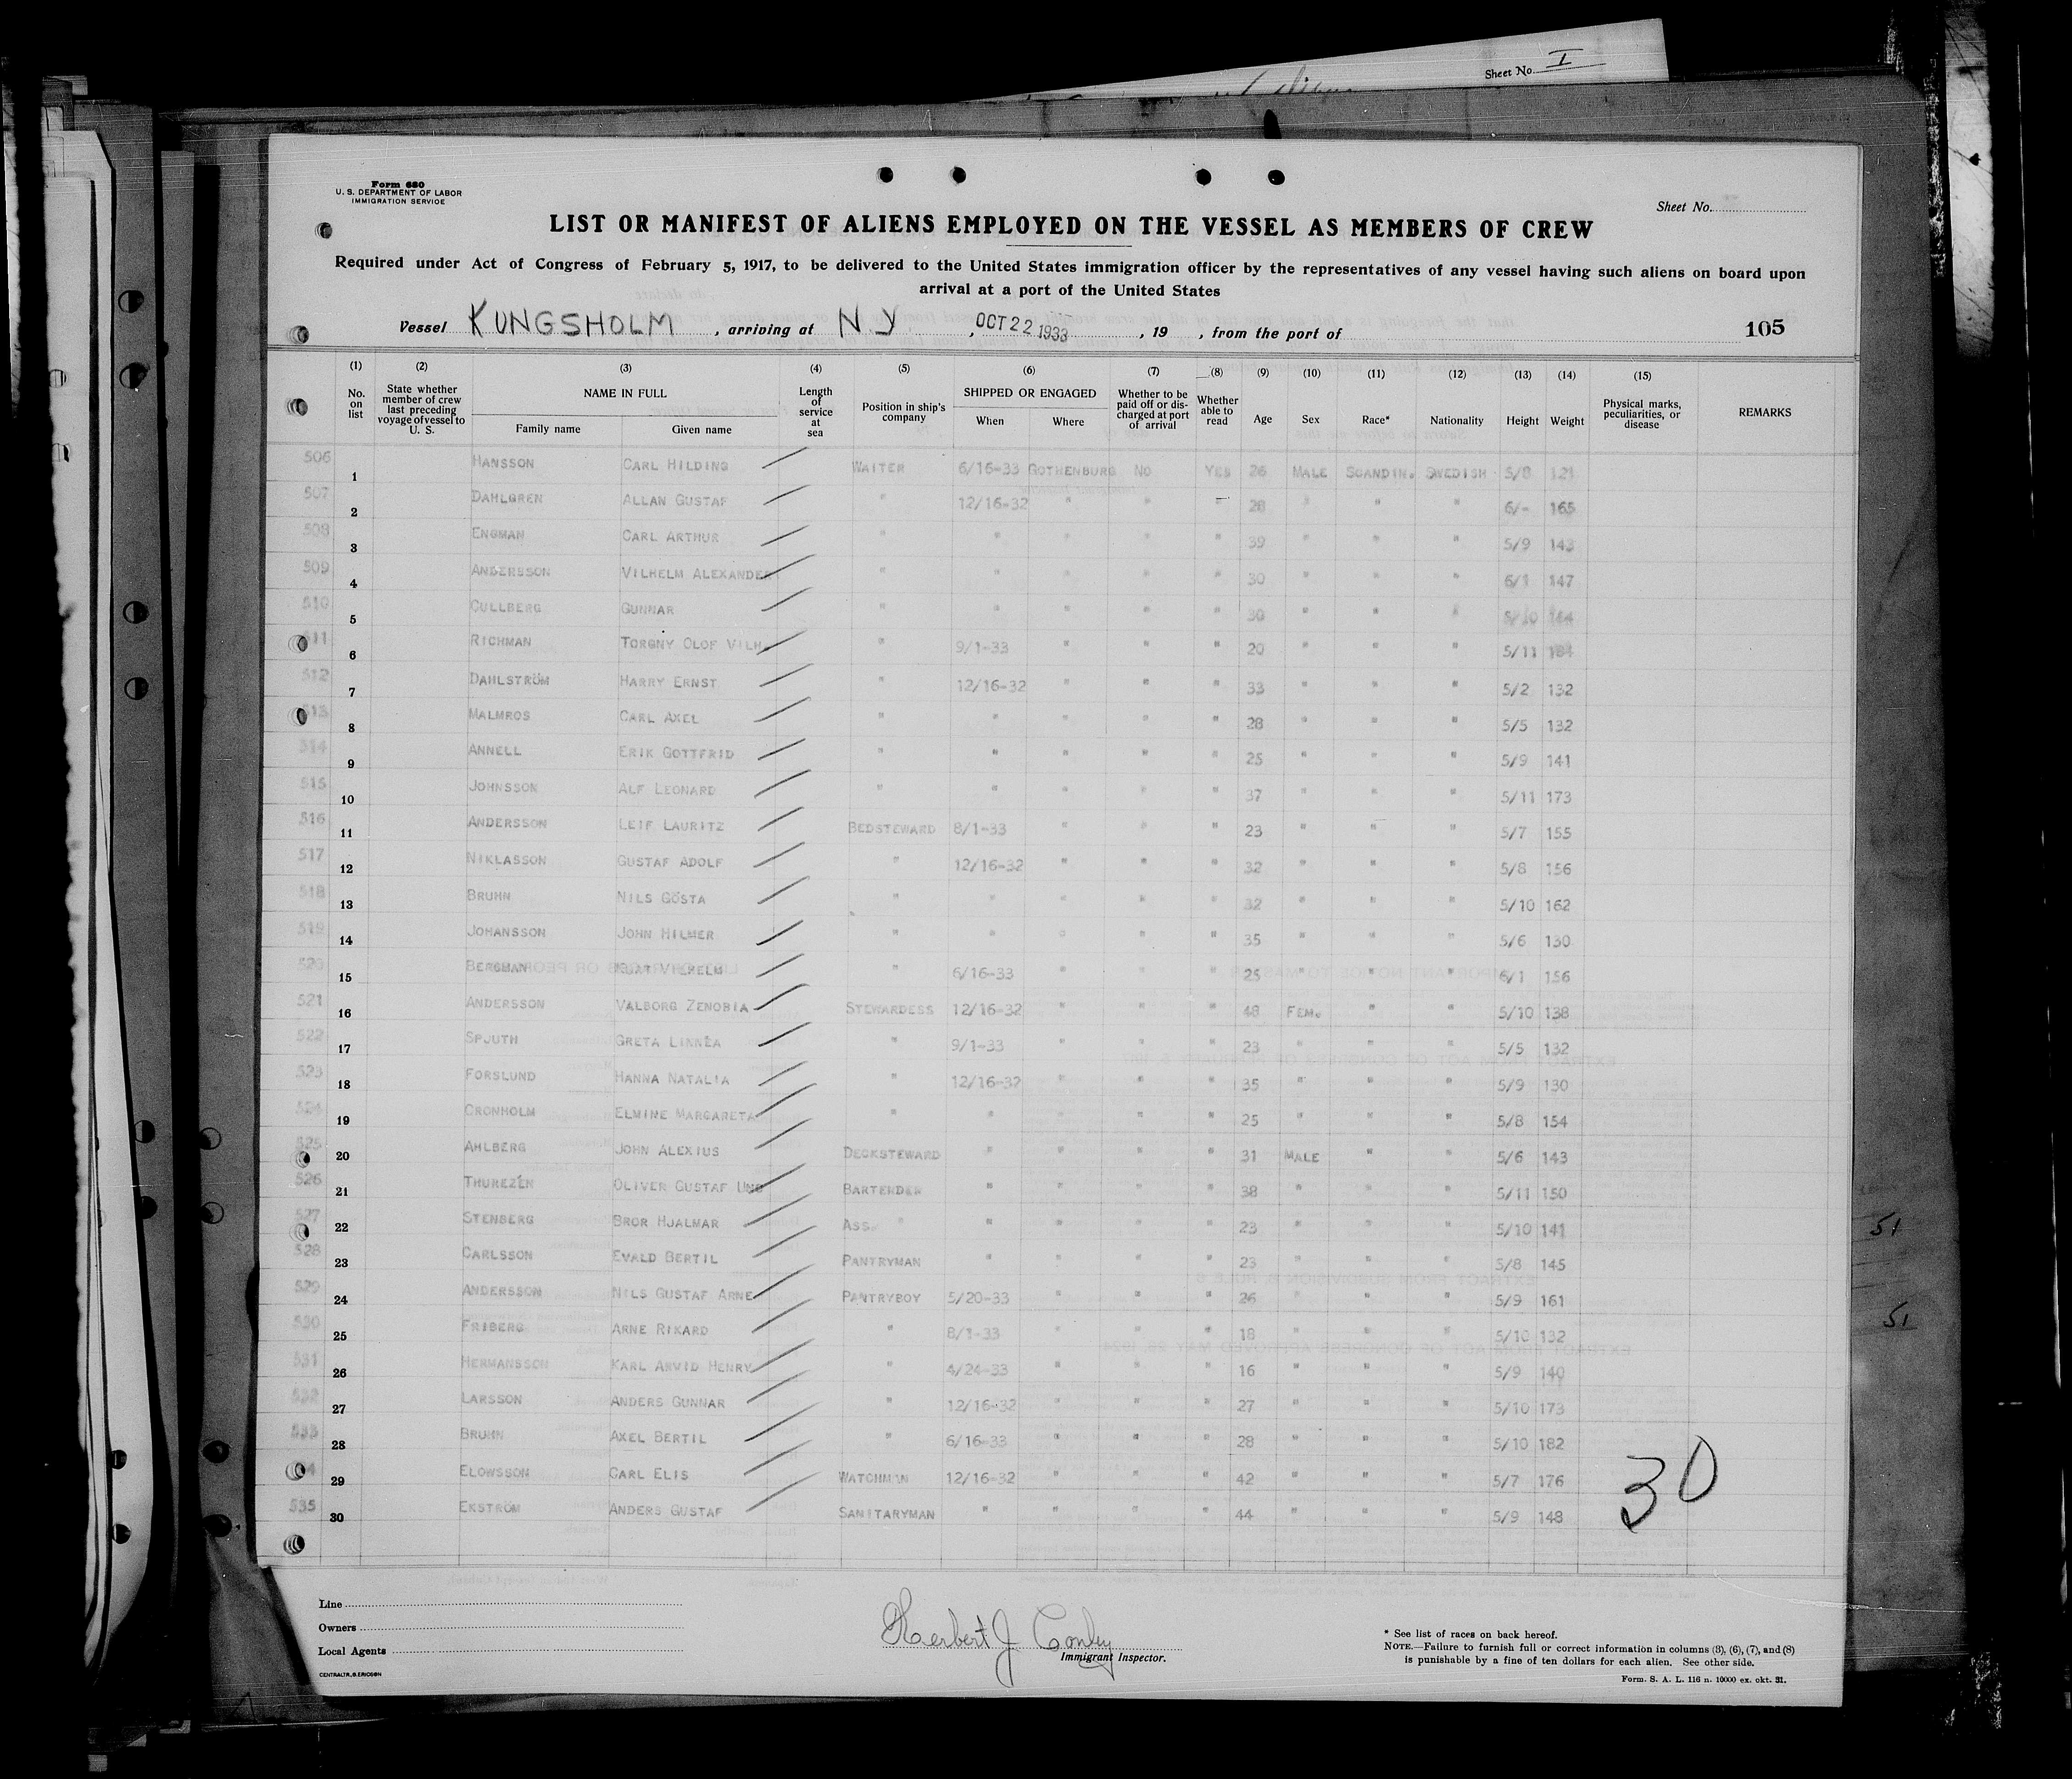 Sheet No. I
Form 680
U. S. DEPARTMENT OF LABOR
IMMIGRATION SERVICE
Sheet No.
LIST OR MANIFEST OF ALIENS EMPLOYED ON THE VESSEL AS MEMBERS OF CREW
Required under Act of Congress of February 5, 1917, to be delivered to the United States immigration officer by the representatives of any vessel having such aliens on board upon
arrival at a port of the United States
Vessel KUNGSHOLM, arriving at N Y, OCT 22 1933, 19 , from the port of 105
(1) (2) (3) (4) (5) (6) (7) (8) (9) (10) (11) (12) (13) (14) (15)
No. on list State whether member of crew last preceding voyage of vessel to U. S. NAME IN FULL Family name Given name Length of service at sea Position in ship's company SHIPPED OR ENGAGED When Where Whether to be paid off or discharged at port of arrival Whether able to read Age Sex Race* Nationality Height Weight Physical marks, peculiarities, or disease REMARKS
506 1 HANSSON CARL HILDING WAITER 6/16-33 GOTHENBURG NO YES 26 MALE SCANDIN. SWEDISH 5/8 121
507 2 DAHLGREN ALLAN GUSTAF " 12/16-32 " " " 28 " " " 6/- 165
508 3 ENGMAN CARL ARTHUR " " " " " 39 " " " 5/9 143
509 4 ANDERSSON VILHELM ALEXANDER " " " " " 30 " " " 6/1 147
510 5 CULLBERG GUNNAR " " " " " 30 " " " 5/10
511 6 RICHMAN TORGNY OLOF VILH. " 9/1-33 " " " 20 " " " 5/11
512 7 DAHLSTRÖM HARRY ERNST " 12/16-32 " " " 33 " " " 5/2 132
513 8 MALMROS CARL AXEL " " " " " 28 " " " 5/5 132
514 9 ANNELL ERIK GOTTFRID " " " " " 25 " " " 5/9 141
515 10 JOHNSSON ALF LEONARD " " " " " 37 " " " 5/11 173
516 11 ANDERSSON LEIF LAURITZ BEDSTEWARD 8/1-33 " " " 23 " " " 5/7 155
517 12 NIKLASSON GUSTAF ADOLF " 12/16-32 " " " 32 " " " 5/8 156
518 13 BRUHN NILS GÖSTA " " " " " 32 " " " 5/10 162
519 14 JOHANSSON JOHN HILMER " " " " " 35 " " " 5/6 130
520 15 BERGMAN VILHELM " 6/16-33 " " " 25 " " " 6/1 156
521 16 ANDERSSON VALBORG ZENOBIA STEWARDESS 12/16-32 " " " 48 FEM. " " 5/10 138
522 17 SPJUTH GRETA LINNÉA " 9/1-33 " " " 23 " " " 5/5 132
523 18 FORSLUND HANNA NATALIA " 12/16-32 " " " 35 " " " 5/9 130
524 19 CRONHOLM ELMINE MARGARETA " " " " " 25 " " " 5/8 154
525 20 AHLBERG JOHN ALEXIUS DECKSTEWARD " " " " 31 MALE " " 5/6 143
526 21 THUREZÉN OLIVER GUSTAF UNO BARTENDER " " " " 38 " " " 5/11 150
527 22 STENBERG BROR HJALMAR ASS. " " " " " 23 " " " 5/10 141
528 23 CARLSSON EVALD BERTIL PANTRYMAN " " " " 23 " " " 5/8 145
529 24 ANDERSSON NILS GUSTAF ARNE PANTRYBOY 5/20-33 " " " 26 " " " 5/9 161
530 25 FRIBERG ARNE RIKARD " 8/1-33 " " " 18 " " " 5/10 132
531 26 HERMANSSON KARL ARVID HENRY " 4/24-33 " " " 16 " " " 5/9 140
532 27 LARSSON ANDERS GUNNAR " 12/16-32 " " " 27 " " " 5/10 173
533 28 BRUHN AXEL BERTIL " 6/16-33 " " " 28 " " " 5/10 182
29 ELOWSSON CARL ELIS WATCHMAN 12/16-32 " " " 42 " " " 5/7 176
535 30 EKSTRÖM ANDERS GUSTAF SANITARYMAN " " " " 44 " " " 5/9 148
30
51
51
Line
Owners
Local Agents
CENTRALTR, G. ERICSON
Herbert J Conley
Immigrant Inspector.
* See list of races on back hereof.
NOTE.—Failure to furnish full or correct information in columns (3), (6), (7), and (8)
is punishable by a fine of ten dollars for each alien. See other side.
Form. S. A. L. 116 n. 10000 ex. okt. 31.